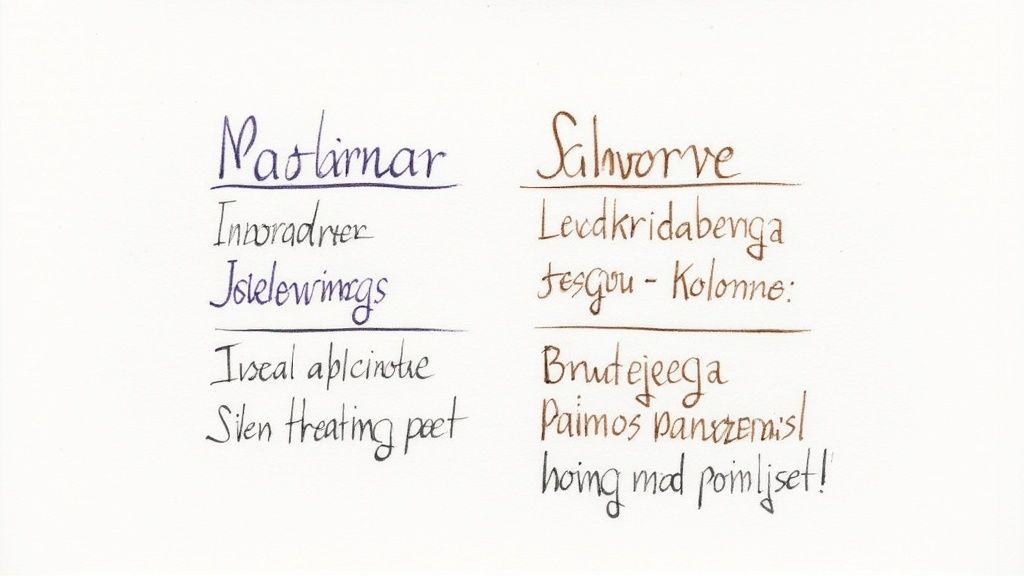 Mastirnar
Invoradrter
Jslelewimzgs
Ivseal aplcinotue
Silen thteating peet
Salworve
Levdkridabenga
tesgou - Kolonne:
Brudejeega
Paimos
hoing mad poimljset!